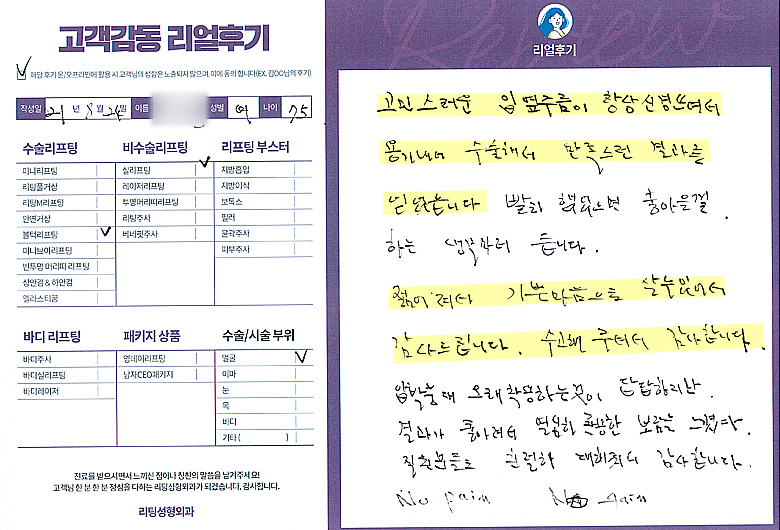 고객감동 리얼후기
해당 후기 온/오프라인에 활용 시 고객님의 성함은 노출되지 않으며, 이에 동의 합니다(EX. 김OO님의 후기)
작성일 21년 8월 24일 이름 성별 여 나이 75
수술리프팅
미니리프팅
리팅풀거상
리팅M리프팅
안면거상
볼턱리프팅
미니브이리프팅
빈투명 머리띠 리프팅
상안검 & 하안검
엘라스티꿈
비수술리프팅
실리프팅
레이저리프팅
투명머리띠리프팅
리팅주사
베네핏주사
리프팅 부스터
지방흡입
지방이식
보톡스
필러
윤곽주사
피부주사
바디 리프팅
바디주사
바디실리프팅
바디레이저
패키지 상품
영데이리프팅
남자CEO패키지
수술/시술 부위
얼굴
이마
눈
목
바디
기타( )
진료를 받으시면서 느끼신 점이나 칭찬의 말씀을 남겨주세요!
고객님 한 분 한 분 정성을 다하는 리팅성형외과가 되겠습니다. 감사합니다.
리팅성형외과
Review
리얼후기
고민스러운 입옆주름이 항상 신경쓰여서
용기내어 수술해서 만족스런 결과를
얻었습니다 빨리 했었으면 좋았을껄
하는 생각부터 듭니다.
젊어져서 기쁜마음으로 살수있어서
감사드립니다. 수술해 주셔서 감사합니다.
압박붕대 오래착용하는것이 답답하지만.
결과가 좋아져서 열심히 착용한 보람을 느꼈다.
직원분들도 친절하 대해줘서 감사합니다.
No pain No gain